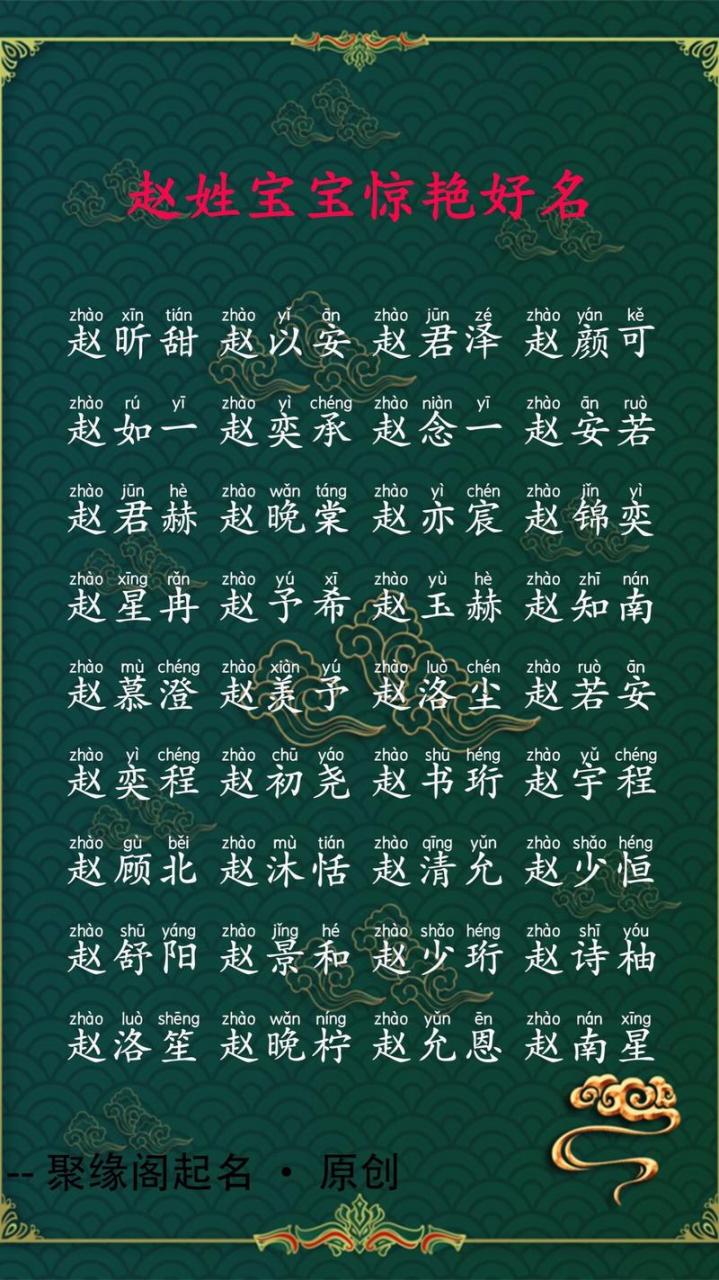 赵姓宝宝惊艳好名
zhào xīn tián zhào yǐ ān zhào jūn zé zhào yán kě
赵昕甜 赵以安 赵君泽 赵颜可
zhào rú yī zhào yì chéng zhào niàn yī zhào ān ruò
赵如一 赵奕承 赵念一 赵安若
zhào jūn hè zhào wǎn táng zhào yì chén zhào jǐn yì
赵君赫 赵晚棠 赵亦宸 赵锦奕
zhào xīng rǎn zhào yú xī zhào yù hè zhào zhī nán
赵星冉 赵予希 赵玉赫 赵知南
zhào mù chéng zhào xiàn yú zhào luò chén zhào ruò ān
赵慕澄 赵羡予 赵洛尘 赵若安
zhào yì chéng zhào chū yáo zhào shū héng zhào yǔ chéng
赵奕程 赵初尧 赵书珩 赵宇程
zhào gù běi zhào mù tián zhào qīng yǔn zhào shǎo héng
赵顾北 赵沐恬 赵清允 赵少恒
zhào shū yáng zhào jǐng hé zhào shǎo héng zhào shī yóu
赵舒阳 赵景和 赵少珩 赵诗柚
zhào luò shēng zhào wǎn níng zhào yǔn ēn zhào nán xīng
赵洛笙 赵晚柠 赵允恩 赵南星
-- 聚缘阁起名 · 原创